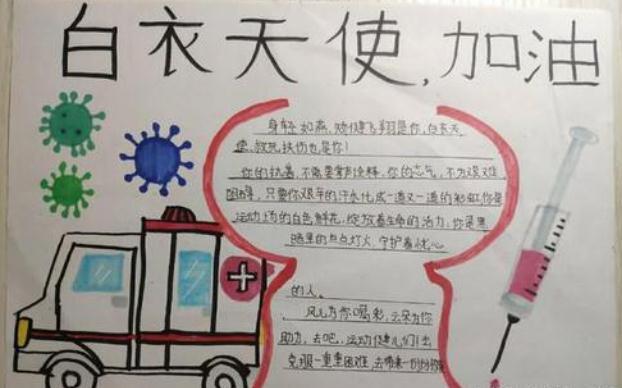 白衣天使,加油
身轻如燕,矫健飞翔是你,白衣天
使,救死扶伤也是你!
你的执着,不需要掌声诠释,你的志气,不为艰难
阻挡,只要你艰辛的汗水化成一道又一道的彩虹,你是
运动场的白色鲜花,绽放着生命的活力,你是黑
暗里的点点灯火,守护着忧心
的人。
风儿为你喝彩,云朵为你
助力,去吧,运动健儿们!去
克服一重重困难,去带来一份份